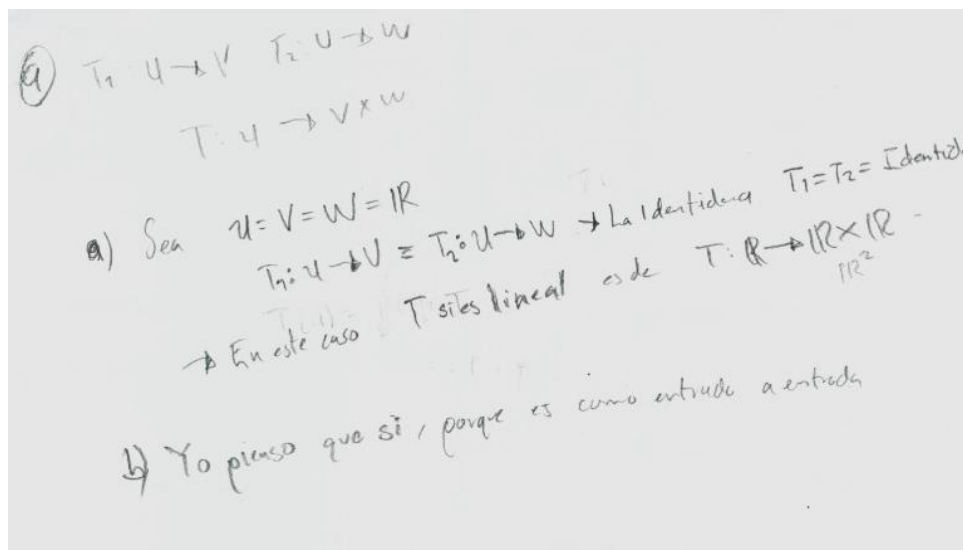 a) T₁: U → V T₂: U → W
T: U → V × W
a) Sea U = V = W = ℝ
T₁: U → V = T₂: U → W → La Identidad T₁ = T₂ = Identid
→ En este caso T si es lineal es de T: ℝ → ℝ × ℝ
ℝ²
b) Yo pienso que si, porque es como entrada a entrada